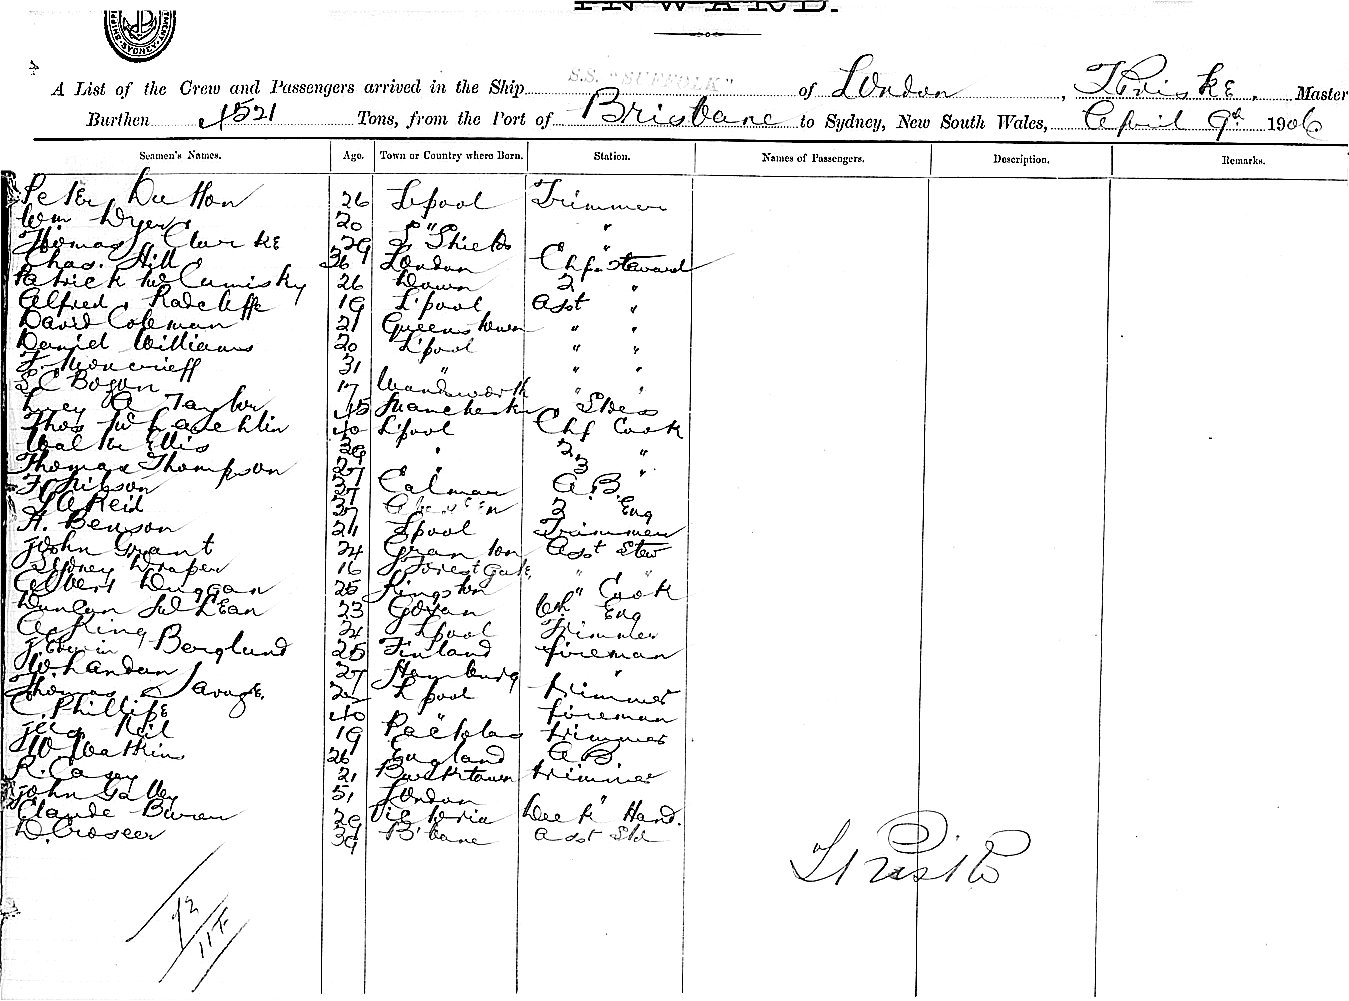 INWARD.
A List of the Crew and Passengers arrived in the Ship S.S. "SUFFOLK" of London, Master
Burthen 4521 Tons, from the Port of Brisbane to Sydney, New South Wales, April 9th 1906
Seamen's Names. Age. Town or Country where Born. Station. Names of Passengers. Description. Remarks.
Peter Dutton 26 L'pool Trimmer
Wm Dyer 20 " "
Thomas Clarke 29 S Shields "
Chas. Hill 36 London Chf. Steward
Patrick McCumisky 26 Down 2 "
Alfred Radcliffe 19 L'pool Asst "
David Coleman 21 Queenstown " "
Daniel Williams 20 L'pool " "
F. Moncrieff 31 " " "
S C Bogan 17 Wandsworth " "
Lucy A Taylor 45 Manchester Stdess
Thos McLaechlin 40 L'pool Chf Cook
Walter Ellis 39 " 2 "
Thomas Thompson 27 " 3 "
37 Calmar A.B.
J A Reid 37 2 Eng
H. Benson 21 L'pool Trimmer
John Grant 24 Granton Asst Stew
Sydney Draper 16 Forest Gate " "
Albert Duggan 25 Kingston " Cook
Duncan McLean 23 Govan 6th Eng
A King 24 L'pool Trimmer
J. Erwin Berglund 25 Finland fireman
27 Hamburg "
Thomas Savage. L'pool trimmer
C Phillips 40 " fireman
Neil 19 trimmer
W Watkins 26 England AB
R. Casey 21 trimmer
John Galley 51 London "
Claude Buren 20 Victoria Deck Hand.
D. Crosier 39 B'bane Asst Std